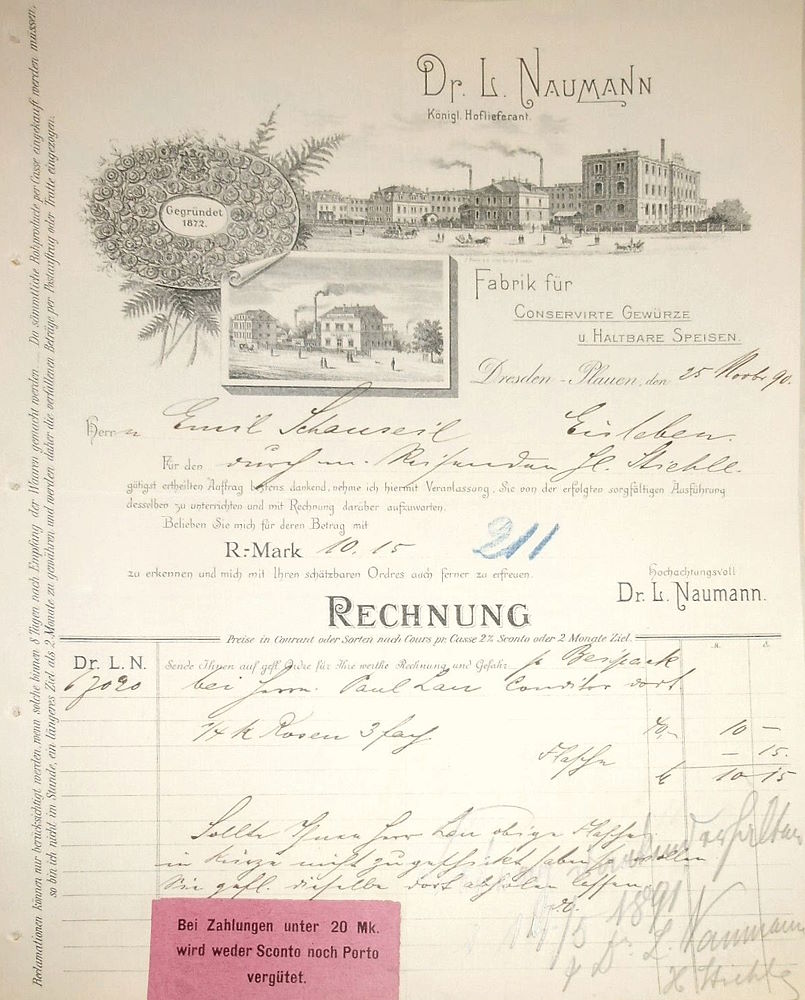 Dr. L. NAUMANN
Königl. Hoflieferant.
Gegründet
1872.
Fabrik für
CONSERVIRTE GEWÜRZE
U. HALTBARE SPEISEN.
Dresden-Plauen, den 25 Novbr 90.
Herrn Emil Schauseil Eisleben.
Für den durch m. Reisenden H. Stiehle.
gütigst ertheilten Auftrag bestens dankend, nehme ich hiermit Veranlassung, Sie von der erfolgten sorgfältigen Ausführung
desselben zu unterrichten und mit Rechnung darüber aufzuwarten.
Belieben Sie mich für deren Betrag mit
R.-Mark 10.15 211
zu erkennen und mich mit Ihren schätzbaren Ordres auch ferner zu erfreuen.
Hochachtungsvoll
Dr. L. Naumann.
RECHNUNG
Preise in Courant oder Sorten nach Cours pr. Casse 2% Sconto oder 2 Monate Ziel.
M. δ.
Dr. L. N. Sende Ihnen auf gefl. Ordre für Ihre werthe Rechnung und Gefahr pr Beipack
67020 bei Herrn Paul Lau Conditor dort
1/4 k Rosen 3 fach 40.- 10 -
Flasche - 15.
10 15
Sollte Ihnen Herr Lau obige Flasche
in Kürze nicht zugeschickt haben, so wollen
Sie gefl. dieselbe dort abholen lassen
D.O.
dankend erhalten
/5 1891
Dr. L. Naumann
H Stiehle
Bei Zahlungen unter 20 Mk.
wird weder Sconto noch Porto
vergütet.
Reclamationen können nur berücksichtigt werden, wenn solche binnen 8 Tagen nach Empfang der Waaren gemacht werden. Da sämmtliche Rohproducte per Casse eingekauft werden müssen,
so bin ich nicht im Stande, ein längeres Ziel als 2 Monate zu gewähren und werden daher die verfallenen Beträge per Postauftrag oder Tratte eingezogen.